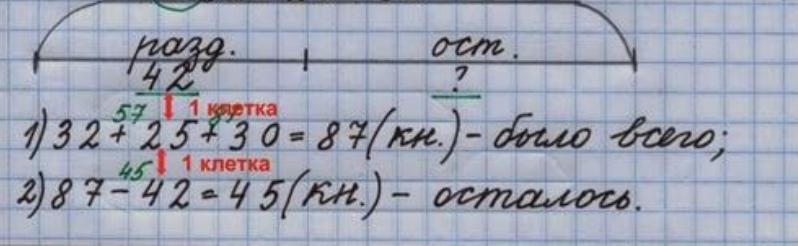 разд. ост.
42 ?
1 клетка
57 87
1) 32 + 25 + 30 = 87 (кн.) – было всего;
1 клетка
45
2) 87 – 42 = 45 (кн.) – осталось.